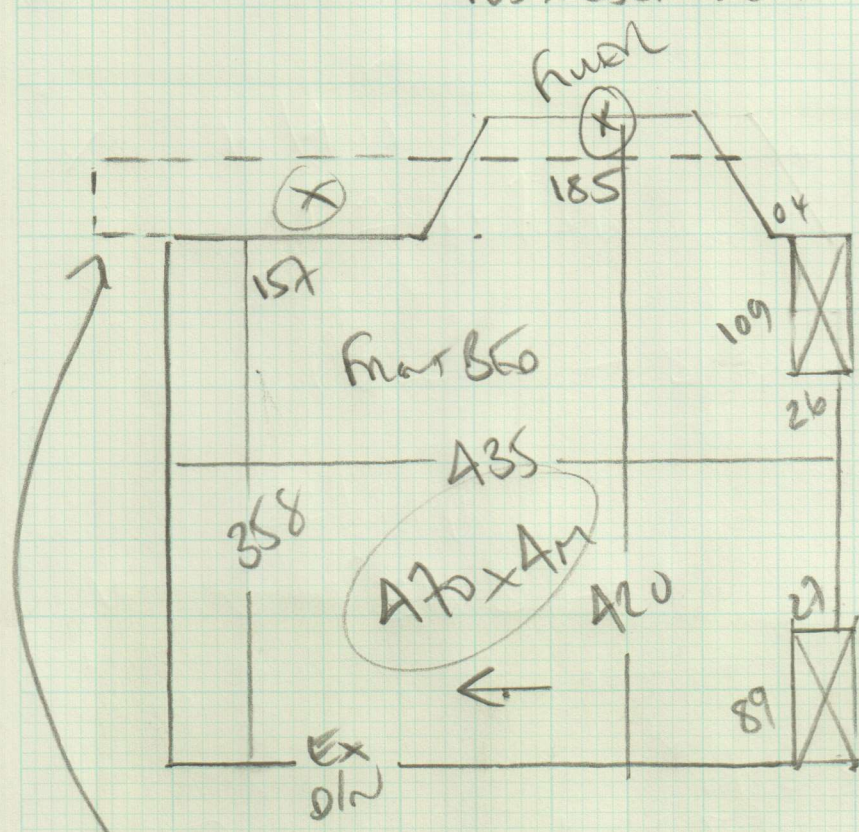 X
X
185
04
157
109
Front BED
26
435
358
470 x 4m
420
27
89
Ex
D/N